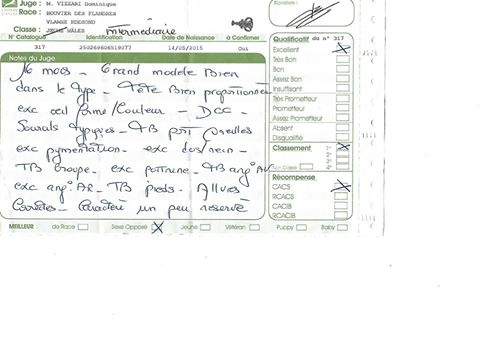 Juge : M. VIZZARI Dominique
Signature :
Race : BOUVIER DES FLANDRES
VLAMSE KOEHOND
Classe : JEUNE MÂLES Intermédiaire
N° Catalogue Identification Date de Naissance A Confirmer
317 250269606519277 14/05/2015 Oui
Notes du Juge
16 mois - Grand modèle Bien
dans le type - Tête Bien proportionnée
exc œil forme/Couleur - DCC -
Sourcils typiques - TB port oreilles
exc pigmentation - exc dos/rein -
TB croupe - exc poitrine - TB angl AV
exc angl AR - TB pieds - Allures
Correctes - Caractère un peu réservé
Qualificatif du n° 317
Excellent
Très Bon
Bon
Assez Bon
Insuffisant
Très Prometteur
Prometteur
Assez Prometteur
Absent
Disqualifié
Classement 1er
2e
3e
Non Classé 4e
Récompense
CACS
RCACS
CACIB
RCACIB
MEILLEUR : de Race Sexe Opposé Jeune Vétéran Puppy Baby